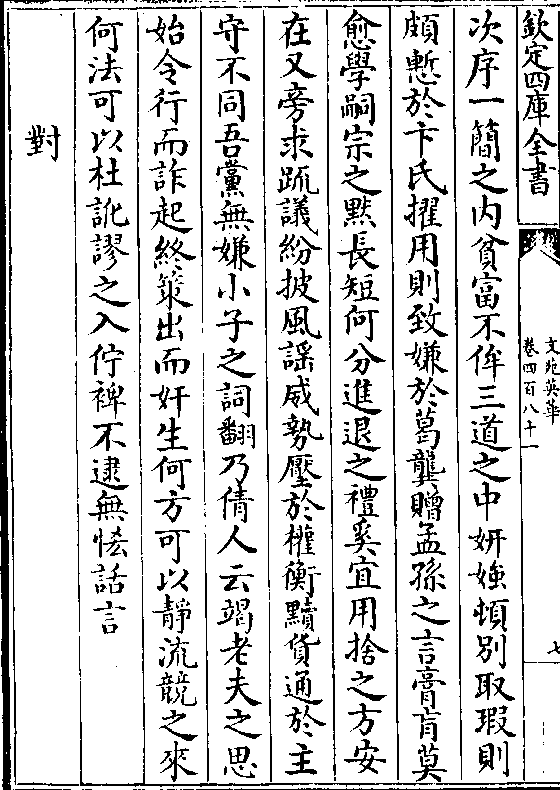 欽定四庫全書
文苑英華
卷四百八十一
七
次序一簡之内貧富不侔三道之中妍媸頓别取瑕則
頗慙於卞氏擢用則致嫌於葛龔贈孟孫之言膏肓莫
愈學嗣宗之默長短何分進退之禮奚宜用捨之方安
在又旁求䟽議紛披風謡威勢壓於權衡黷貨通於主
守不同吾黨無嫌小子之詞翻乃倩人云竭老夫之思
始令行而詐起終策出而奸生何方可以靜流競之來
何法可以杜訛謬之入佇裨不逮無恡話言
對